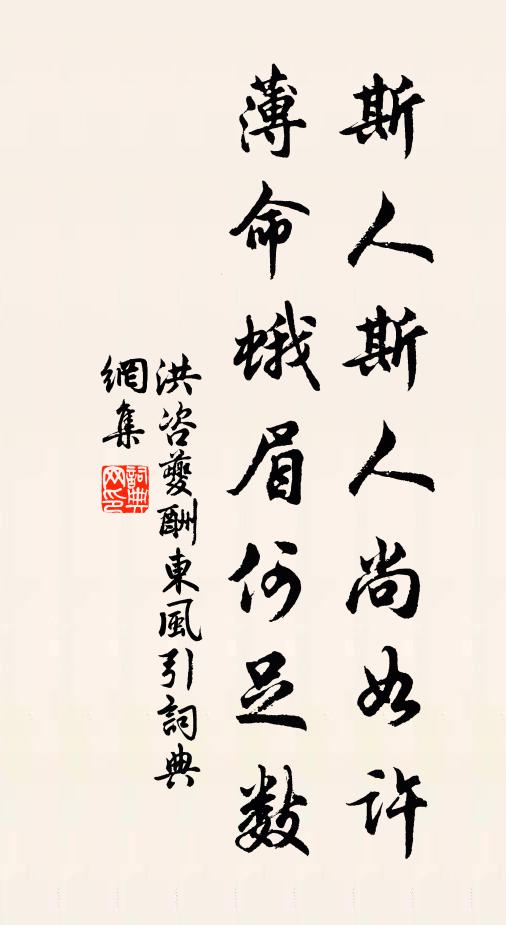 斯人斯人尚如許
薄命蛾眉何足數
洪咨夔酬東風引詞典
網集
詞典
网印